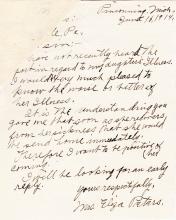 Pinconning, Mich.
June 16, 1914.
e, Pa.
have not recently heard the
in regard to my daughters Illness.
I would be very much pleased to
know the worse or better of
her Illness.
It is the understanding you
gave me that soon as she
from her sickness that she would
be send home immediately.
Therefore I want to be positive of her
coming.
I will be looking for an early
reply.
Yours respectfully,
Mrs Eliza Peters.